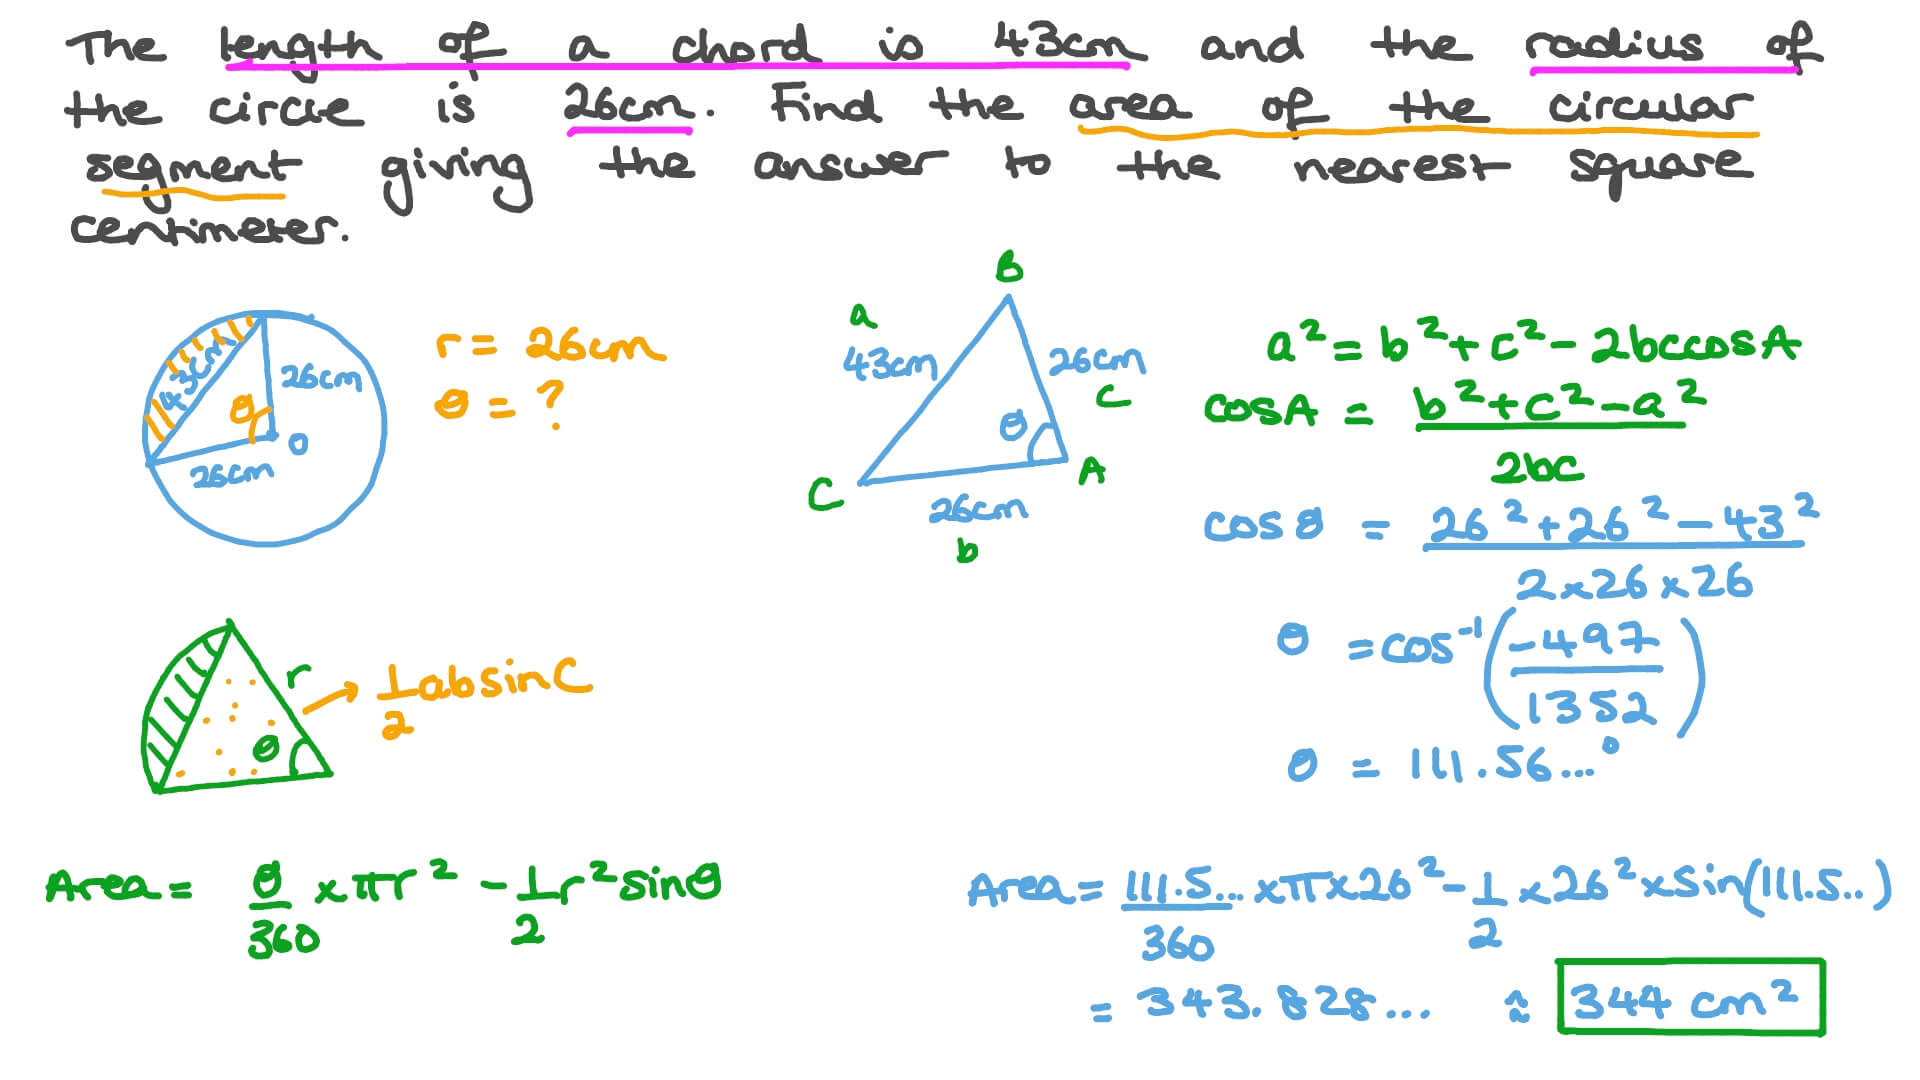 The length of a chord is 43cm and the radius of
the circle is 26cm. Find the area of the circular
segment giving the answer to the nearest square
centimeter.
43cm
26cm
θ
O
26cm
r = 26cm
θ = ?
B
a
43cm
26cm
c
θ
A
C
26cm
b
a² = b² + c² - 2bccosA
cosA = b² + c² - a²
2bc
cos θ = 26² + 26² - 43²
2 × 26 × 26
θ = cos⁻¹ ( -497
1352 )
θ = 111.56...°
r
θ
1
2 absinC
Area = θ
360 × πr² - 1
2 r² sinθ
Area = 111.5...
360 × π × 26² - 1
2 × 26² × sin(111.5..)
= 343.828... ≈ 344 cm²